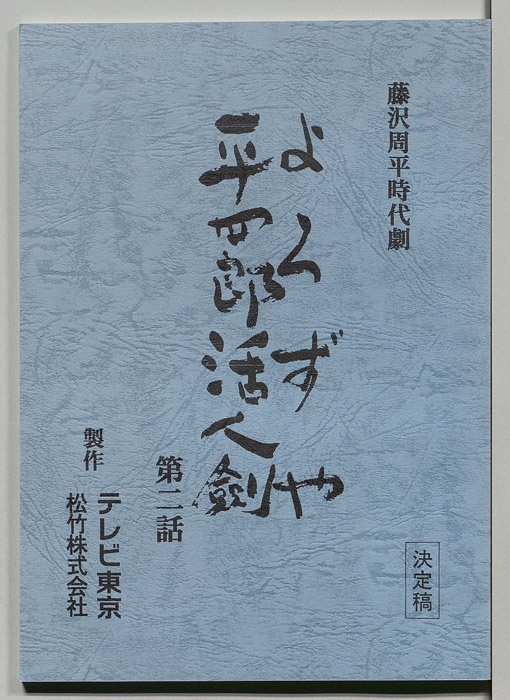 藤沢周平時代劇
よろずや
平四郎活人剣
第二話
決定稿
製作
テレビ東京
松竹株式会社